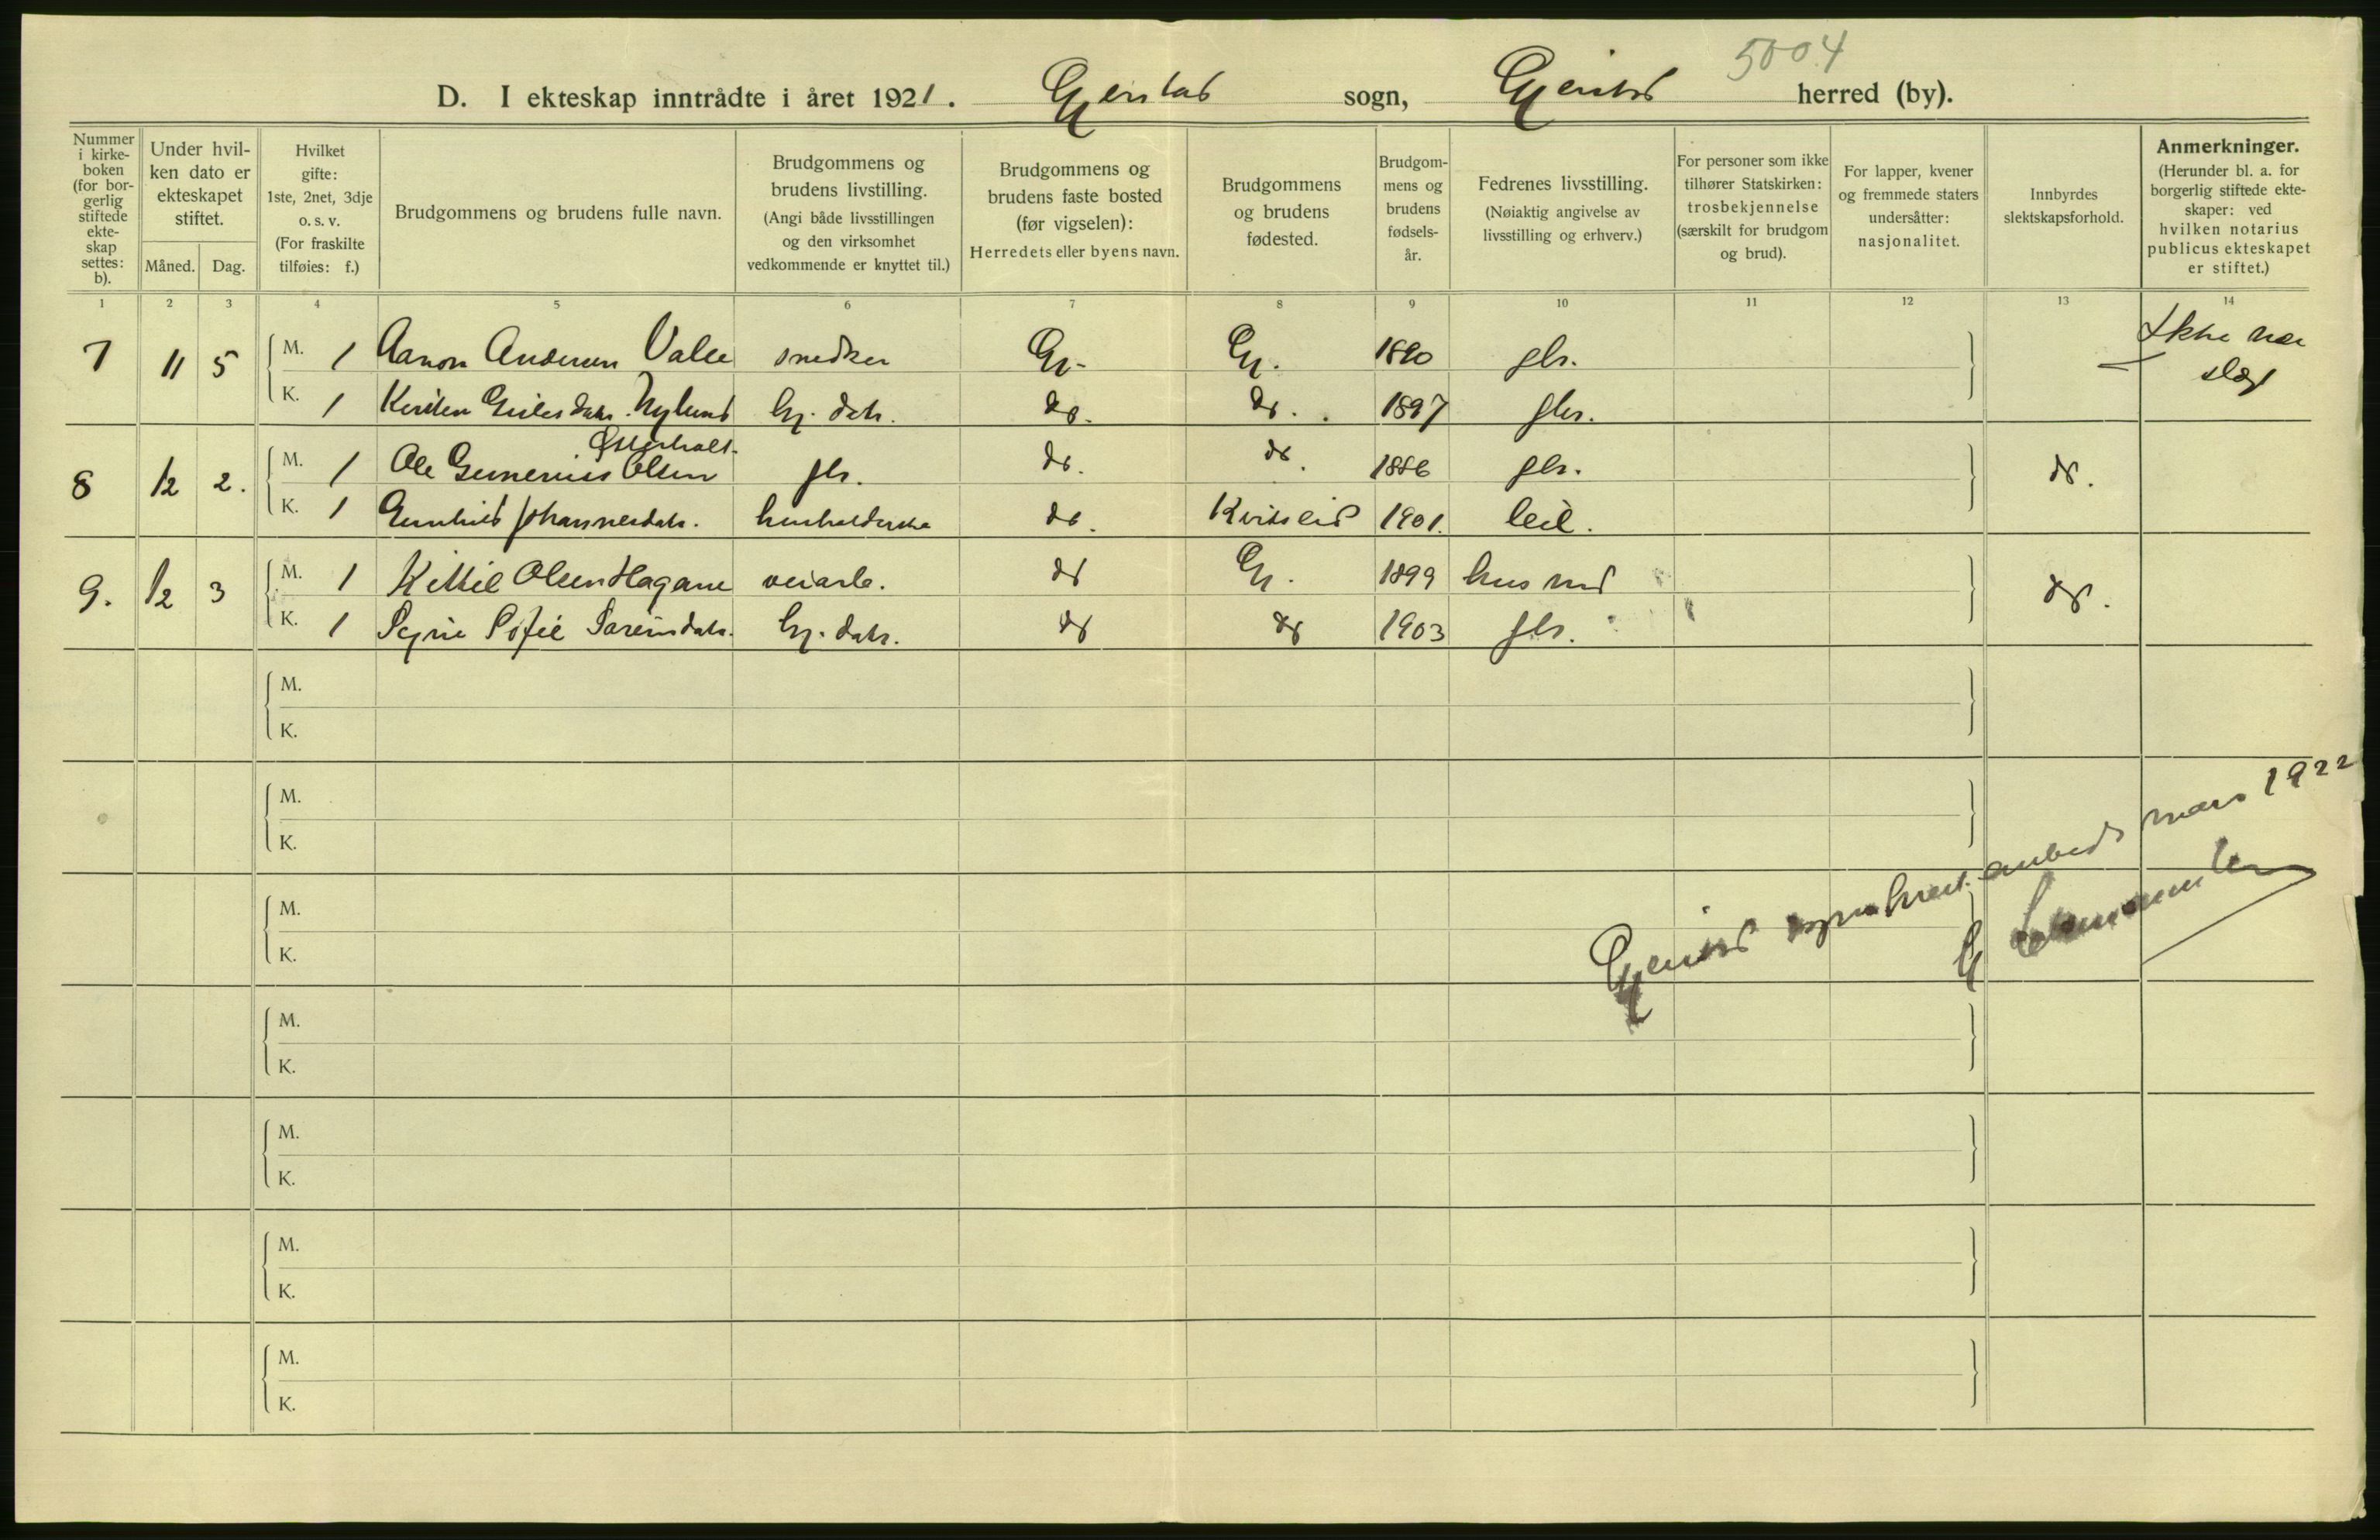 5004
D. I ekteskap inntrådte i året 1921. Gjerstad sogn, Gjerstad herred (by).
Nummer i kirke- boken (for bor- gerlig stiftede ekte- skap settes: b).
Under hvil- ken dato er ekteskapet stiftet.
Måned. Dag.
Hvilket gifte: 1ste, 2net, 3dje o. s. v. (For fraskilte tilføies: f.)
Brudgommens og brudens fulle navn.
Brudgommens og brudens livstilling. (Angi både livsstillingen og den virksomhet vedkommende er knyttet til.)
Brudgommens og brudens faste bosted (før vigselen): Herredets eller byens navn.
Brudgommens og brudens fødested.
Brudgom- mens og brudens fødsels- år.
Fedrenes livsstilling. (Nøiaktig angivelse av livsstilling og erhverv.)
For personer som ikke tilhører Statskirken: trosbekjennelse (særskilt for brudgom og brud).
For lapper, kvener og fremmede staters undersåtter: nasjonalitet.
Innbyrdes slektskapsforhold.
Anmerkninger. (Herunder bl. a. for borgerlig stiftede ekte- skaper: ved hvilken notarius publicus ekteskapet er stiftet.)
1 2 3 4 5 6 7 8 9 10 11 12 13 14
7 11 5 M. 1 Aanon Andersen Valle snedker Gj. Gj. 1890 gbr. Ikke nær slægt
K. 1 Kirsten Nylund Gj. datr. do. do. 1897 gbr.
Østerholt
8 12 2. M. 1 Ole Gunerius Olsen gbr. do. do. 1886 gbr. do.
K. 1 Gunhild Johannesdatr. husholderske do. Kviteseid 1901. leil.
9. 12 3 M. 1 Kittil Olsen Hagane veiarb. do Gj. 1899 husmd do.
K. 1 Signe Sofie Sørensdatr. Gj. datr. do do 1903 gbr.
M.
K.
M.
K.
M.
K.
M.
K.
M.
K.
M.
K.
M.
K.
Gjerstad mars 1922